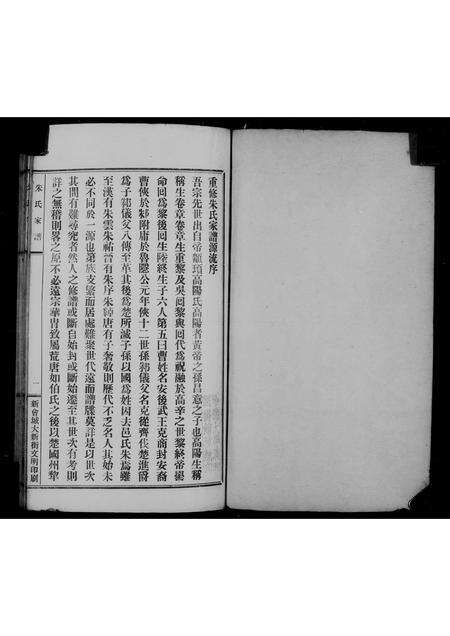 重修朱氏家譜源流序
吾宗先世出自帝顓頊高陽氏高陽者黃帝之孫昌意之子也高陽生稱
稱生卷章卷章生重黎及吳囘黎與囘代爲祝融於高辛之世黎終帝嚳
命囘爲黎後囘生陸終生子六人第五曰曹姓名安後武王克商封安裔
曹俠於邾附庸於魯隱公元年俠十二世孫邾儀父名克從齊伐楚進爵
爲子邾儀父八傳至革其後爲楚所滅子孫以國爲姓因去邑氏朱焉雖
至漢有朱雲朱祐晉有朱序朱綽唐有子奢敬則歷代不乏名人其始未
必不同於一源也第族支繁而居處難聚世代遠而譜牒莫詳是以世次
其間有難尋究者然人之修譜或斷自始封或斷始遷至其世次有考則
詳之無稽則畧之原不必遠宗華胄致屬荒唐如伯氏之後以楚國州犂
朱氏家譜
一
新會城大新街文明印刷